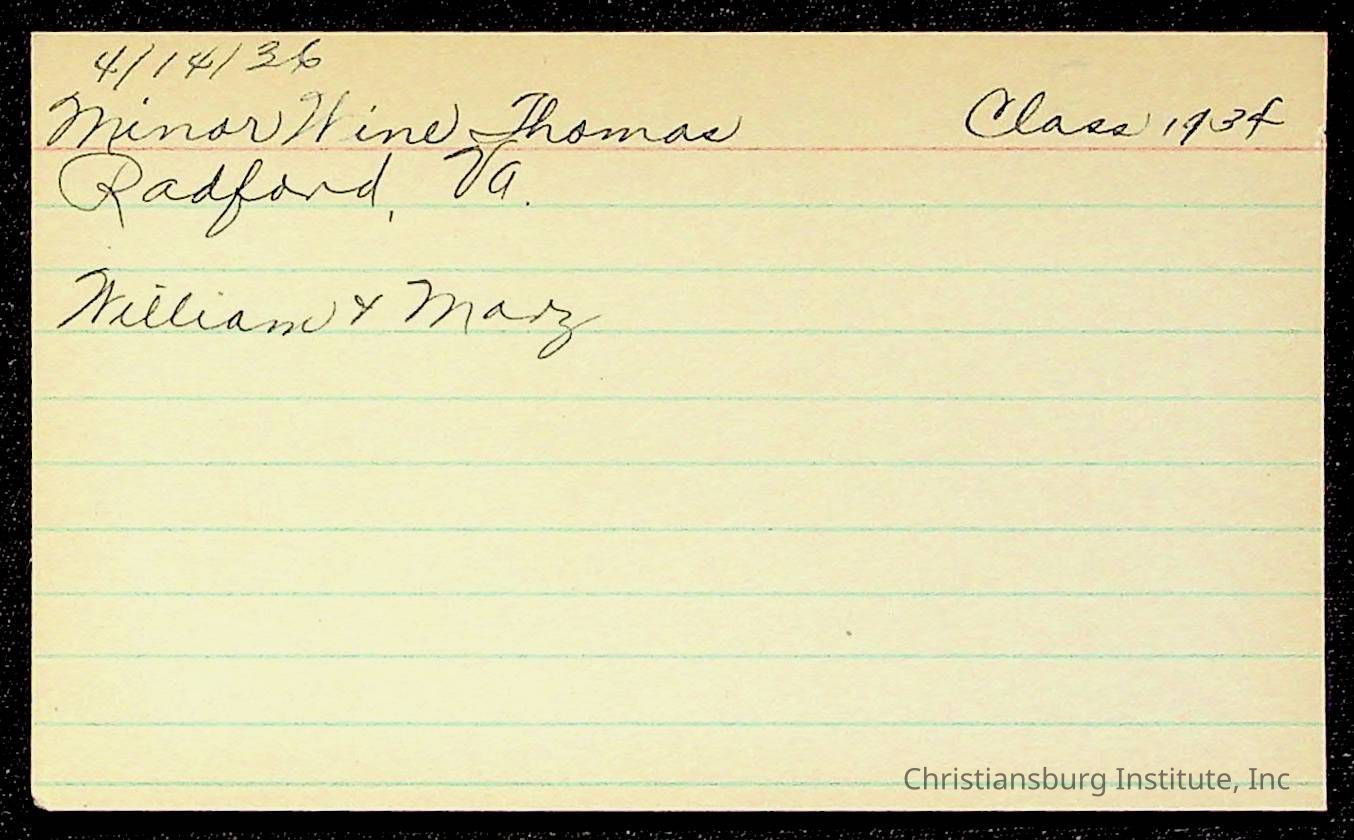 4/14/36
Minor Wine Thomas Class 1934
Radford, Va.
William & Mary
Christiansburg Institute, Inc